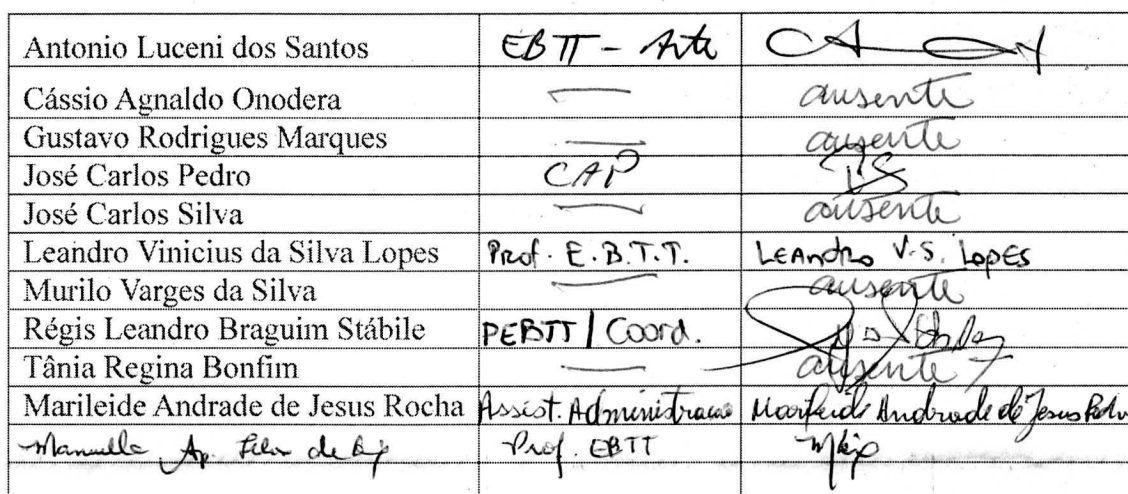 Antonio Luceni dos Santos EBTT - Arte
Cássio Agnaldo Onodera ausente
Gustavo Rodrigues Marques ausente
José Carlos Pedro CAP
José Carlos Silva ausente
Leandro Vinicius da Silva Lopes Prof. E.B.T.T. LEANDRO V.S. LOPES
Murilo Varges da Silva ausente
Régis Leandro Braguim Stábile PEBTT / Coord.
Tânia Regina Bonfim ausente
Marileide Andrade de Jesus Rocha Assist. Administração Marileide Andrade de Jesus Rocha
Ap. de Prof. EBTT